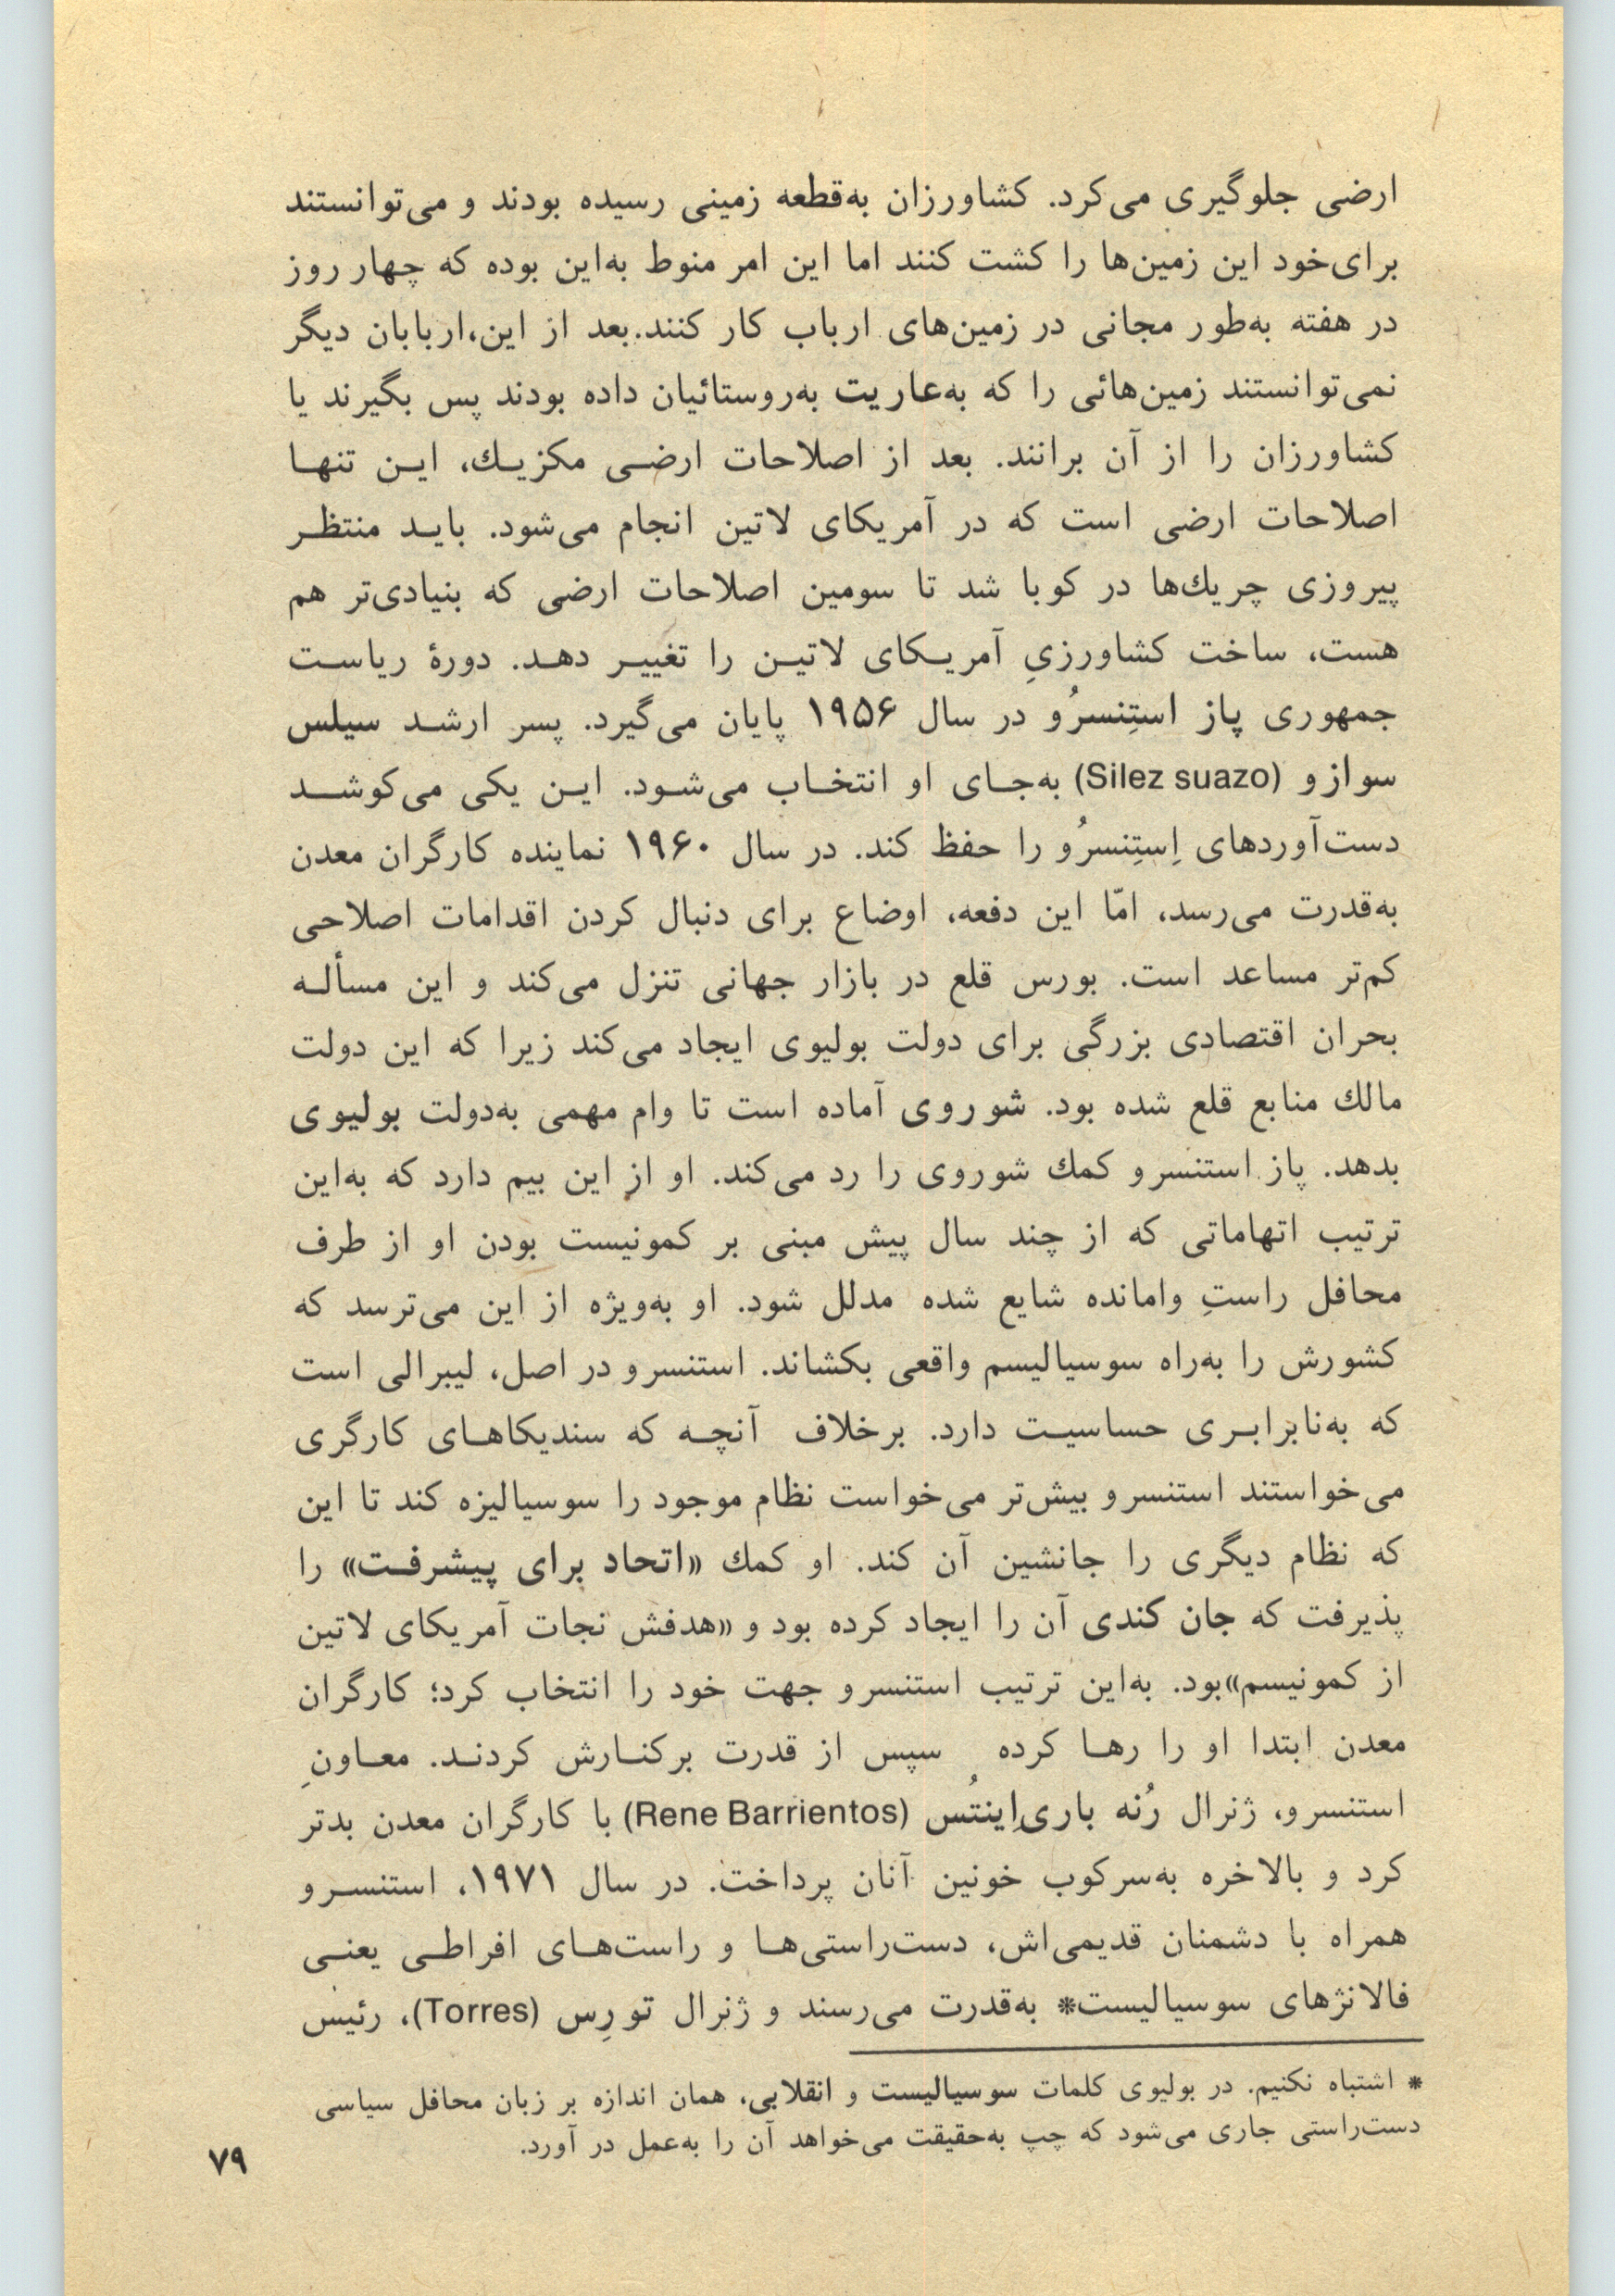 ارضی جلوگیری می‌کرد. کشاورزان به‌قطعه زمینی رسیده بودند و می‌توانستند
برای‌خود این زمین‌ها را کشت کنند اما این امر منوط به‌این بوده که چهار روز
در هفته به‌طور مجانی در زمین‌های ارباب کار کنند.بعد از این،اربابان دیگر
نمی‌توانستند زمین‌هائی را که به‌عاریت به‌روستائیان داده بودند پس بگیرند یا
کشاورزان را از آن برانند. بعد از اصلاحات ارضی مکزیك، این تنها
اصلاحات ارضی است که در آمریکای لاتین انجام می‌شود. باید منتظر
پیروزی چریك‌ها در کوبا شد تا سومین اصلاحات ارضی که بنیادی‌تر هم
هست، ساخت کشاورزیِ آمریکای لاتین را تغییر دهد. دورهٔ ریاست
جمهوری پاز استِنسرُو در سال ۱۹۵۶ پایان می‌گیرد. پسر ارشد سیلس
سوازو (Silez suazo) به‌جای او انتخاب می‌شود. این یکی می‌کوشد
دست‌آوردهای اِستِنسرُو را حفظ کند. در سال ۱۹۶۰ نماینده کارگران معدن
به‌قدرت می‌رسد، امّا این دفعه، اوضاع برای دنبال کردن اقدامات اصلاحی
کم‌تر مساعد است. بورس قلع در بازار جهانی تنزل می‌کند و این مسأله
بحران اقتصادی بزرگی برای دولت بولیوی ایجاد می‌کند زیرا که این دولت
مالك منابع قلع شده بود. شوروی آماده است تا وام مهمی به‌دولت بولیوی
بدهد. پاز استنسرو کمك شوروی را رد می‌کند. او از این بیم دارد که به‌این
ترتیب اتهاماتی که از چند سال پیش مبنی بر کمونیست بودن او از طرف
محافل راستِ وامانده شایع شده مدلل شود. او به‌ویژه از این می‌ترسد که
کشورش را به‌راه سوسیالیسم واقعی بکشاند. استنسرو در اصل، لیبرالی است
که به‌نابرابری حساسیت دارد. برخلاف آنچه که سندیکاهای کارگری
می‌خواستند استنسرو بیش‌تر می‌خواست نظام موجود را سوسیالیزه کند تا این
که نظام دیگری را جانشین آن کند. او کمك «اتحاد برای پیشرفت» را
پذیرفت که جان کندی آن را ایجاد کرده بود و «هدفش نجات آمریکای لاتین
از کمونیسم»بود. به‌این ترتیب استنسرو جهت خود را انتخاب کرد؛ کارگران
معدن ابتدا او را رها کرده سپس از قدرت برکنارش کردند. معاونِ
استنسرو، ژنرال رُنه باری‌اِینتُس (Rene Barrientos) با کارگران معدن بدتر
کرد و بالاخره به‌سرکوب خونین آنان پرداخت. در سال ۱۹۷۱، استنسرو
همراه با دشمنان قدیمی‌اش، دست‌راستی‌ها و راست‌های افراطی یعنی
فالانژهای سوسیالیست* به‌قدرت می‌رسند و ژنرال تورِس (Torres)، رئیس
* اشتباه نکنیم. در بولیوی کلمات سوسیالیست و انقلابی، همان اندازه بر زبان محافل سیاسی
دست‌راستی جاری می‌شود که چپ به‌حقیقت می‌خواهد آن را به‌عمل در آورد.
۷۹